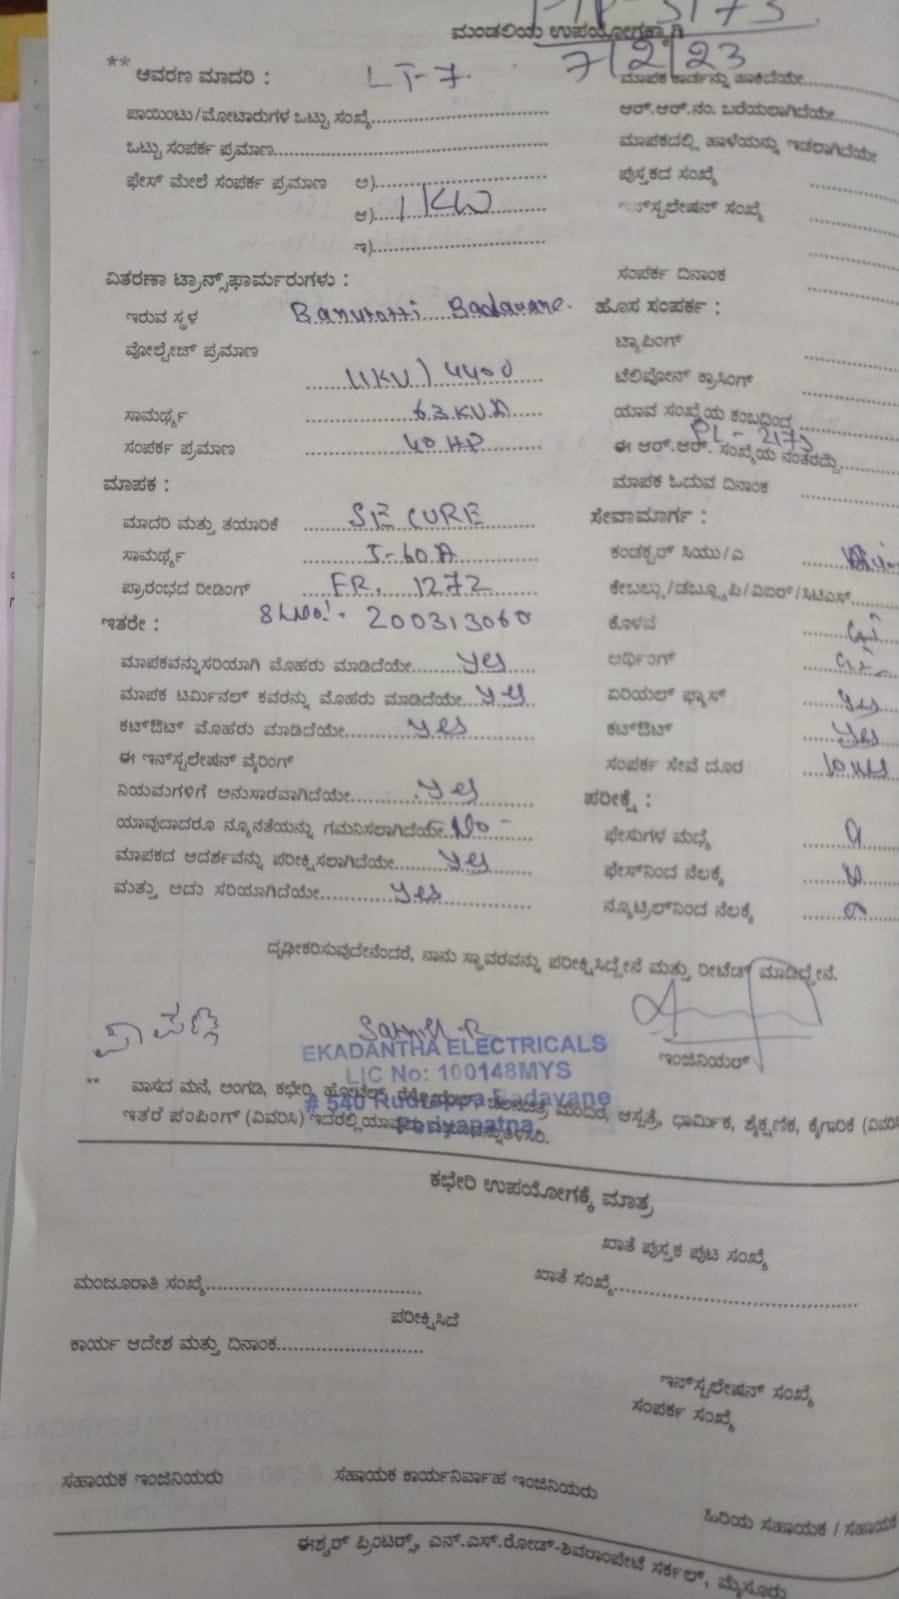 ಮಂಡಲಿಯ ಉಪಯೋಗಕ್ಕಾಗಿ
7/2/23
** ಆವರಣ ಮಾದರಿ : LT-7.
ಮಾಪಕ ಕಾರ್ಡನ್ನು ಹಾಕಿದೆಯೇ
ಪಾಯಿಂಟು/ಮೋಟಾರುಗಳ ಒಟ್ಟು ಸಂಖ್ಯೆ
ಆರ್.ಆರ್.ನಂ. ಬರೆಯಲಾಗಿದೆಯೇ
ಒಟ್ಟು ಸಂಪರ್ಕ ಪ್ರಮಾಣ
ಮಾಪಕದಲ್ಲಿ ಹಾಳೆಯನ್ನು ಇಡಲಾಗಿದೆಯೇ
ಫೇಸ್ ಮೇಲೆ ಸಂಪರ್ಕ ಪ್ರಮಾಣ ಅ)
ಪುಸ್ತಕದ ಸಂಖ್ಯೆ
ಆ) 1 KW
ಇನ್‌ಸ್ಟಲೇಷನ್ ಸಂಖ್ಯೆ
ಇ)
ವಿತರಣಾ ಟ್ರಾನ್ಸ್‌ಫಾರ್ಮರುಗಳು :
ಸಂಪರ್ಕ ದಿನಾಂಕ
ಇರುವ ಸ್ಥಳ Badavane.
ಹೊಸ ಸಂಪರ್ಕ :
ವೋಲ್ಟೇಜ್ ಪ್ರಮಾಣ 11KV / 440V
ಟ್ಯಾಪಿಂಗ್
ಟೆಲಿಪೋನ್ ಕ್ರಾಸಿಂಗ್
ಸಾಮರ್ಥ್ಯ 63 KVA
ಯಾವ ಸಂಖ್ಯೆಯ ಕಂಬದಿಂದ
ಸಂಪರ್ಕ ಪ್ರಮಾಣ 40 HP
PL - 2173
ಈ ಆರ್.ಆರ್. ಸಂಖ್ಯೆಯ ನಂತರದ್ದು
ಮಾಪಕ :
ಮಾಪಕ ಓದುವ ದಿನಾಂಕ
ಮಾದರಿ ಮತ್ತು ತಯಾರಿಕೆ SECURE
ಸೇವಾಮಾರ್ಗ :
ಸಾಮರ್ಥ್ಯ 5-60A
ಕಂಡಕ್ಟರ್ ಸಿಯು/ಎ
ಪ್ರಾರಂಭದ ರೀಡಿಂಗ್ FR. 1272
ಕೇಬಲ್ಲು/ಡಬ್ಲ್ಯೂಪಿ/ವಿಐಆರ್/ಸಿಟಿಎಸ್
ಇತರೇ : SLNO:- 200313060
ಕೊಳವೆ GI
ಮಾಪಕವನ್ನುಸರಿಯಾಗಿ ಮೊಹರು ಮಾಡಿದೆಯೇ yes
ಅರ್ಥಿಂಗ್
ಮಾಪಕ ಟರ್ಮಿನಲ್ ಕವರನ್ನು ಮೊಹರು ಮಾಡಿದೆಯೇ yes
ಏರಿಯಲ್ ಫ್ಯೂಸ್ yes
ಕಟ್‌ಔಟ್ ಮೊಹರು ಮಾಡಿದೆಯೇ yes
ಕಟ್‌ಔಟ್ yes
ಈ ಇನ್‌ಸ್ಟಲೇಷನ್ ವೈರಿಂಗ್
ಸಂಪರ್ಕ ಸೇವೆ ದೂರ
ನಿಯಮಗಳಿಗೆ ಅನುಸಾರವಾಗಿದೆಯೇ yes
ಪರೀಕ್ಷೆ :
ಯಾವುದಾದರೂ ನ್ಯೂನತೆಯನ್ನು ಗಮನಿಸಲಾಗಿದೆಯೇ No -
ಫೇಸುಗಳ ಮಧ್ಯೆ
ಮಾಪಕದ ಆದರ್ಶವನ್ನು ಪರೀಕ್ಷಿಸಲಾಗಿದೆಯೇ yes
ಫೇಸ್‌ನಿಂದ ನೆಲಕ್ಕೆ
ಮತ್ತು ಅದು ಸರಿಯಾಗಿದೆಯೇ yes
ನ್ಯೂಟ್ರಲ್‌ನಿಂದ ನೆಲಕ್ಕೆ
ದೃಢೀಕರಿಸುವುದೇನೆಂದರೆ, ನಾನು ಸ್ಥಾವರವನ್ನು ಪರೀಕ್ಷಿಸಿದ್ದೇನೆ ಮತ್ತು ರೀಟೆಡ್ ಮಾಡಿದ್ದೇನೆ.
ಇಂಜಿನಿಯರ್
EKADANTHA ELECTRICALS
LIC No: 100148MYS
# 540 Rudrappa Badavane
Periyapatna.
** ವಾಸದ ಮನೆ, ಅಂಗಡಿ, ಕಛೇರಿ, ಹೋಟೆಲ್, ಮಂದಿರ, ಆಸ್ಪತ್ರೆ, ಧಾರ್ಮಿಕ, ಶೈಕ್ಷಣಿಕ, ಕೈಗಾರಿಕೆ
ಇತರೆ ಪಂಪಿಂಗ್ (ವಿವರಿಸಿ) ಇದರಲ್ಲಿ
ಕಛೇರಿ ಉಪಯೋಗಕ್ಕೆ ಮಾತ್ರ
ಖಾತೆ ಪುಸ್ತಕ ಪುಟ ಸಂಖ್ಯೆ
ಮಂಜೂರಾತಿ ಸಂಖ್ಯೆ
ಖಾತೆ ಸಂಖ್ಯೆ
ಪರೀಕ್ಷಿಸಿದೆ
ಕಾರ್ಯ ಆದೇಶ ಮತ್ತು ದಿನಾಂಕ
ಇನ್‌ಸ್ಟಲೇಷನ್ ಸಂಖ್ಯೆ
ಸಂಪರ್ಕ ಸಂಖ್ಯೆ
ಸಹಾಯಕ ಇಂಜಿನಿಯರು
ಸಹಾಯಕ ಕಾರ್ಯನಿರ್ವಾಹ ಇಂಜಿನಿಯರು
ಹಿರಿಯ ಸಹಾಯಕ /
ಈಶ್ವರ್ ಪ್ರಿಂಟರ್ಸ್, ಎನ್.ಎಸ್.ರೋಡ್-ಶಿವರಾಂಪೇಟೆ ಸರ್ಕಲ್, ಮೈಸೂರು